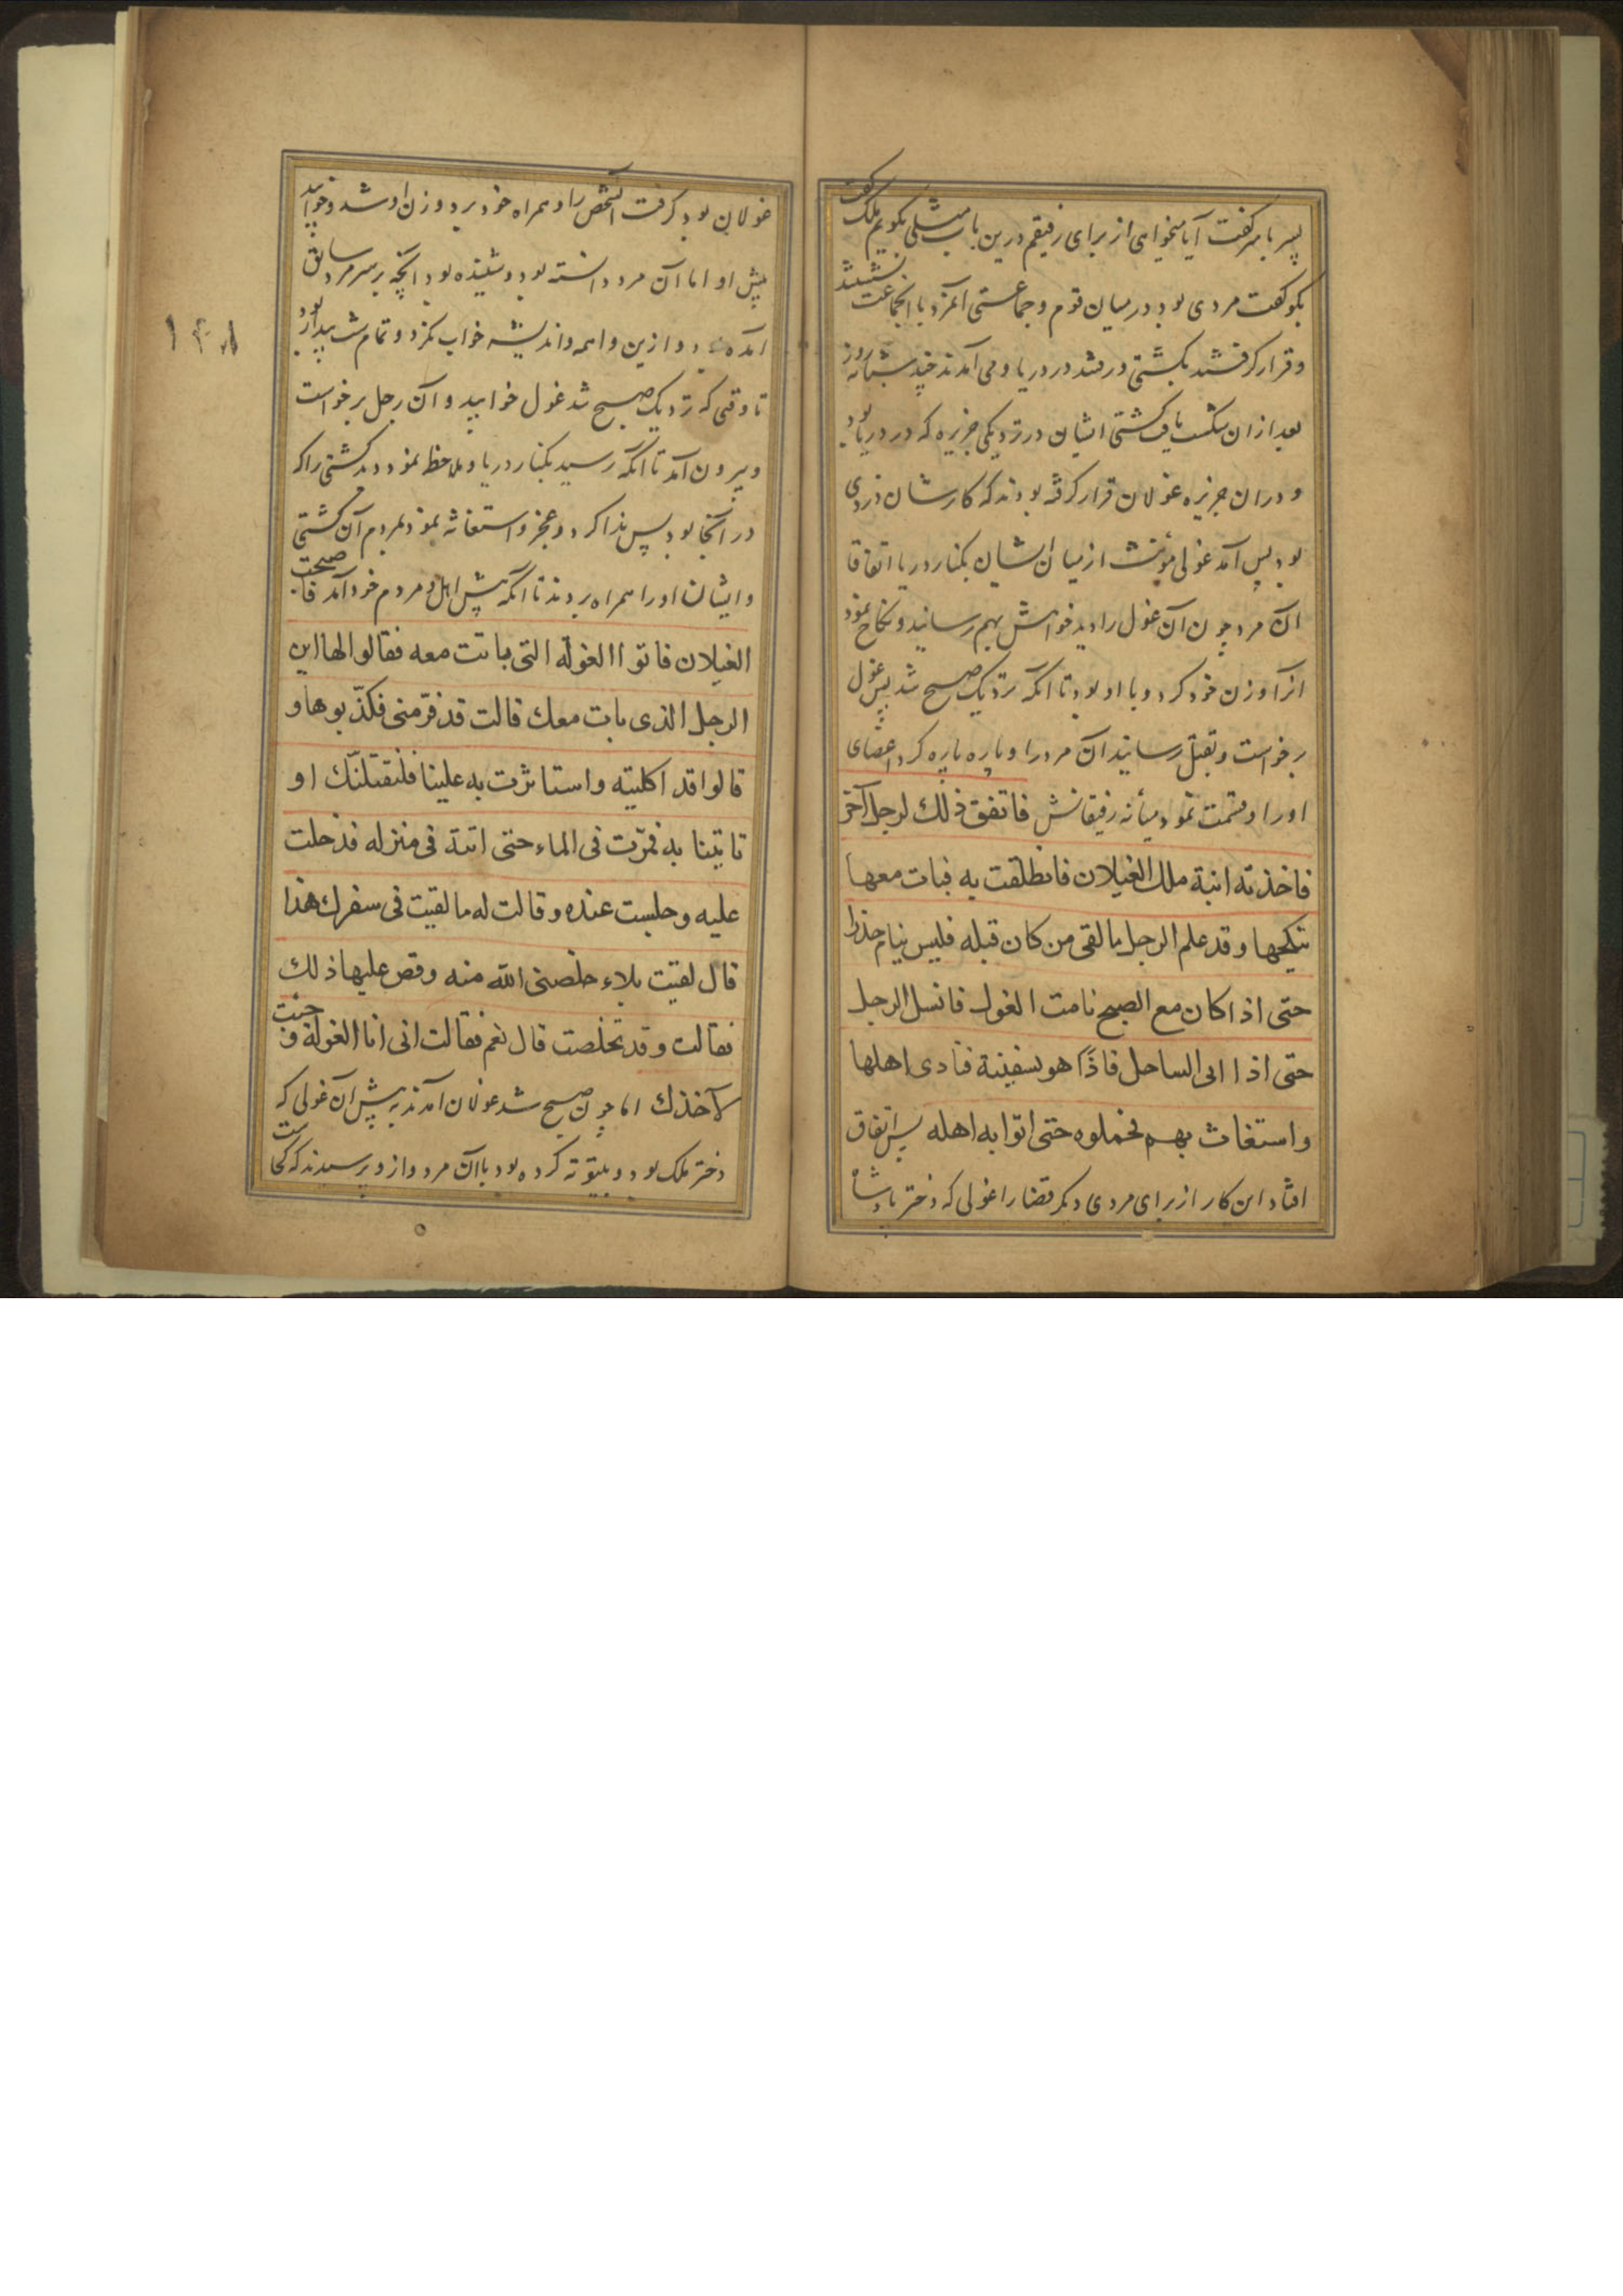 پسر با پدر گفت آیا میخواهی از برای رفیقم درین باب مثلی بگویم ملک گفت
بگو گفت مردی بود در میان قوم و جماعتی آنمرد با انجماعت نشستند
و قرار گرفتند بکشتی و رفتند در دریا و می آمدند چند شبانه روز
بعد از ان شکست یافت کشتی ایشان در نزدیکی جزیره که در دریا بود
و در ان جزیره غولان قرار گرفته بودند که کارشان دزدی
بود پس آمد غولی مؤنث از میان ایشان بکنار دریا اتفاقا
آن مرد چون آن غول را دید خواهش بهم رسانید و نکاح نمود
انرا و زن خود کرد و با او بود تا آنکه نزدیک صبح شد پس غول
برخواست و بقتل رسانید آن مرد را و پاره پاره کرد اعضای
اورا و قسمت نمود میانه رفیقانش فاتفق ذلك لرجل آخر
فاخذته ابنة ملك الغیلان فانطلقت به فبات معها
ینکحها و قد علم الرجل ما لقی من کان قبله فلیس ینام حذرا
حتی اذا کان مع الصبح نامت الغول فانسل الرجل
حتی اذا اتی الساحل فاذا هو بسفینة فنادی اهلها
و استغاث بهم فحملوه حتی اتوا به اهله پس اتفاق
افتاد این کار از برای مردی دیگر قضا را غولی که دختر پادشاه
غولان بود گرفت آنشخص را و همراه خود برد و زن او شد و خوابید
پیش او اما آن مرد دانسته بود و شنیده بود آنچه بر سر مرد سابق
آمده بود و ازین واهمه و اندیشه خواب نکرد و تمام شب بیدار بود
تا وقتی که نزدیک صبح شد غول خوابید و آن رجل برخواست
و بیرون آمد تا آنکه رسید بکنار دریا و ملاحظه نمود دید کشتی را که
در آنجا بود پس ندا کرد و عجز و استغاثه نمود بمردم آن کشتی
و ایشان اورا همراه بردند تا آنکه پیش اهل و مردم خود آمد فاصبحت
الغیلان فاتوا الغولة التی باتت معه فقالوا لها این
الرجل الذی بات معك قالت قد فرّ منی فکذّبوها و
قالوا قد اکلتیه و استاثرت به علینا فلنقتلنّك او
تاتینا به فمرّت فی الماء حتی اتته فی منزله فدخلت
علیه و جلست عنده و قالت له ما لقیت فی سفرك هذا
قال لقیت بلاء خلصنی الله منه و قص علیها ذلك
فقالت و قد تخلصت قال نعم فقالت انی انا الغولة و جئت
لآخذك اما چون صبح شد غولان آمدند به پیش آن غولی که
دختر ملک بود و بیتوته کرده بود با آن مرد و از و پرسیدند که کجاست